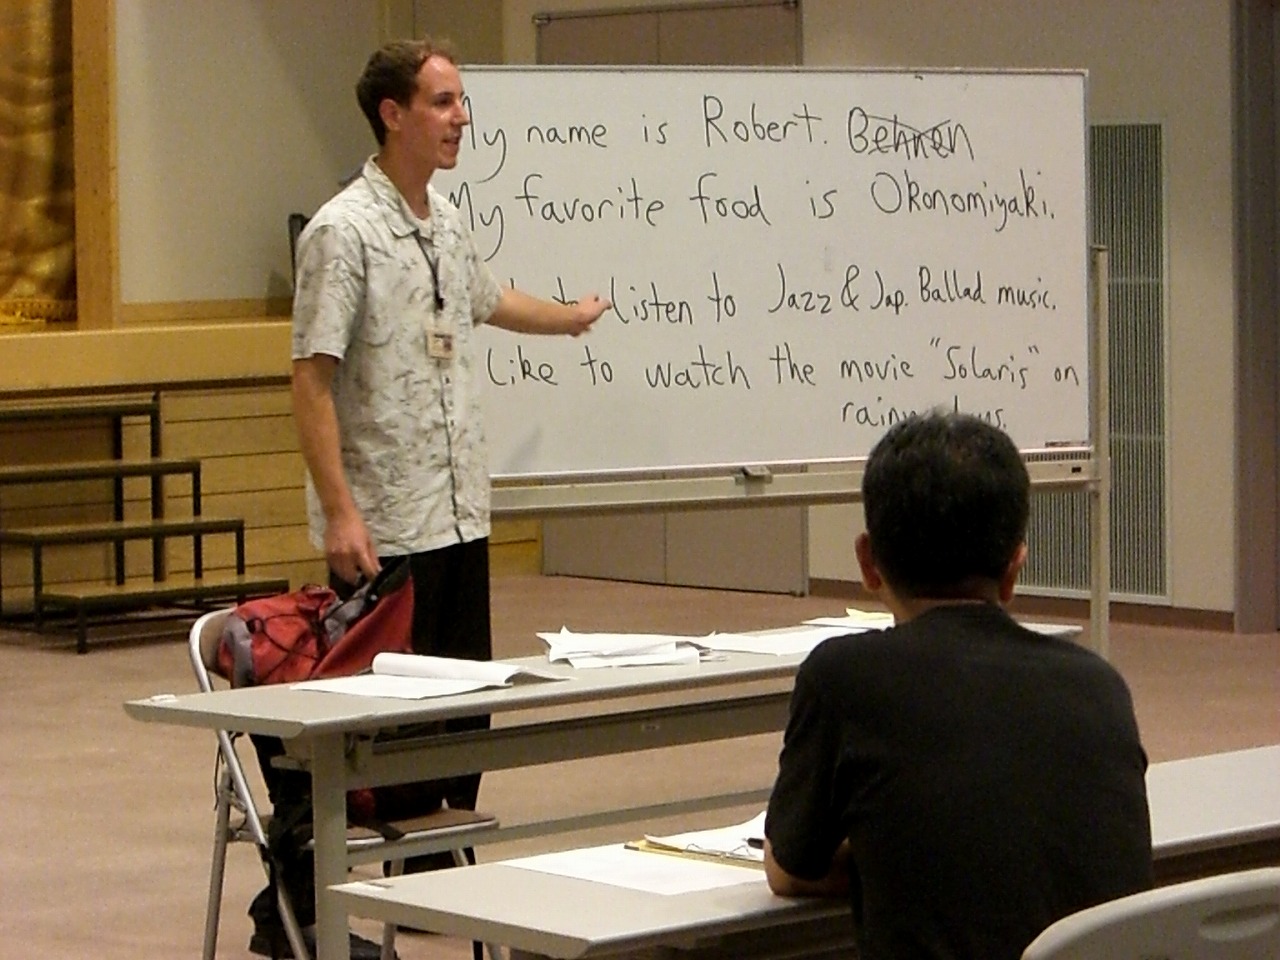 My name is Robert. Behnen
My favorite food is Okonomiyaki.
to listen to Jazz & Jap. Ballad music.
Like to watch the movie "Solaris" on
rainy